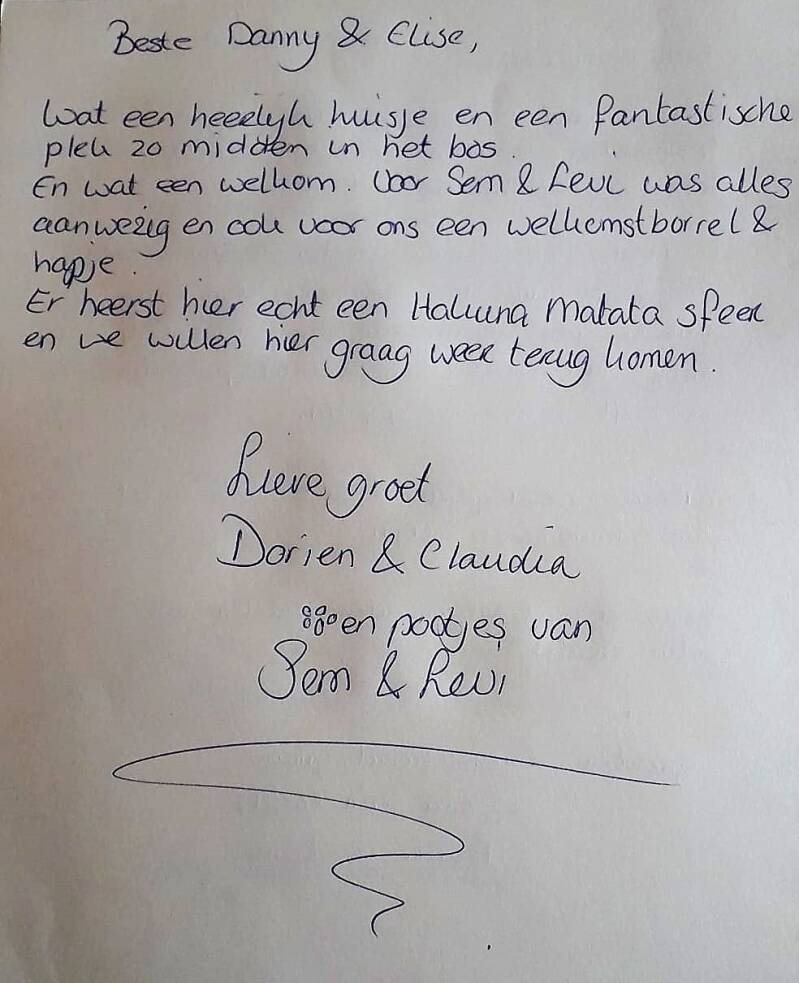 Beste Danny & Elise,
Wat een heerlijk huisje en een fantastische
plek zo midden in het bos.
En wat een welkom. Voor Sem & Levi was alles
aanwezig en ook voor ons een welkomstborrel &
hapje.
Er heerst hier echt een Hakuna Matata sfeer
en we willen hier graag weer terug komen.
Lieve groet
Dorien & Claudia
en pootjes van
Sem & Levi